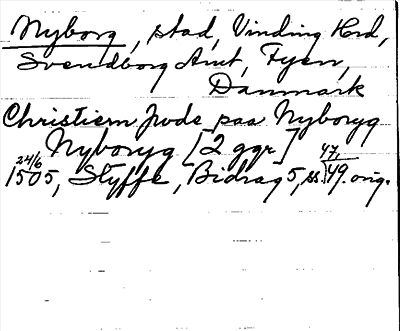 Nyborg, stad, Vinding Hrd,
Svendborg Amt, Fyen,
Danmark
Christiern Jwde paa Nyboryg
Nyboryg [2 ggr]
24/6 1505, Styffe, Bidrag 5, ss. 47, 49. orig.